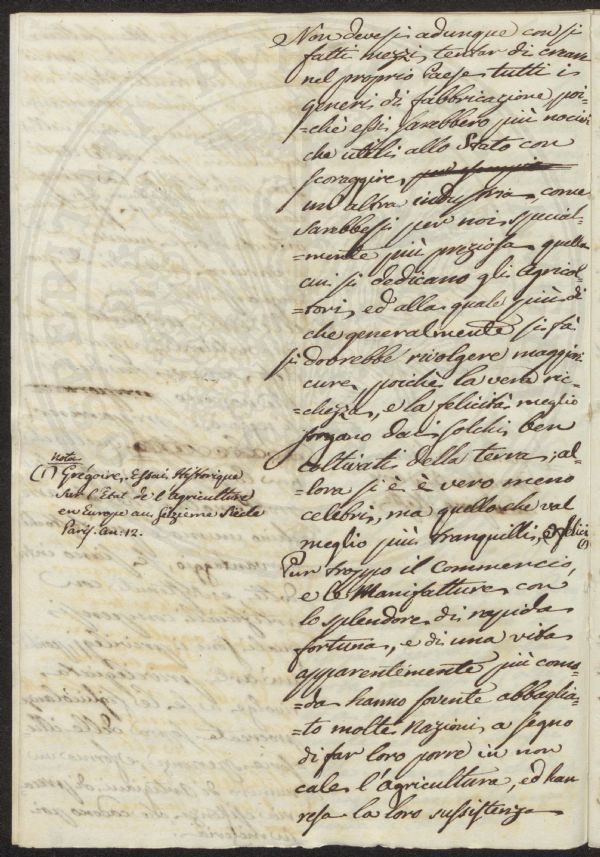 Non devesi adunque con sì
fatti mezzi tentar di creare
nel proprio Paese tutti i
generi di fabbricazione poi-
=chè essi sarebbero più nocivi
che utili allo Stato con
scoraggire
un'altra industria, come
sarebbesi per noi special-
=mente più preziosa quella
cui si dedicano gli Agricol-
=tori, ed alla quale più di
che generalmente si fà
si dovrebbe rivolgere maggiori
cure, poichè la vera ric-
=chezza, e la felicità meglio
sorgano dai solchi ben
coltivati della terra; al-
lora si è è vero meno
celebri, ma quello che val
meglio più tranquilli, e felici
(1)
Pur troppo il commercio,
e le Manifatture con
lo splendore di rapida
fortuna, e di una vita
apparentemente più como-
=da hanno sovente abbaglia-
=to molte Nazioni a segno
di far loro porre in non
cale l'Agricultura, ed han
resa la loro sussistenza
Nota
(1) Grégoire, Essai Historique
sur l'Etat de l'Agriculture
en Europe au seizième Siècle
Paris. An: 12.